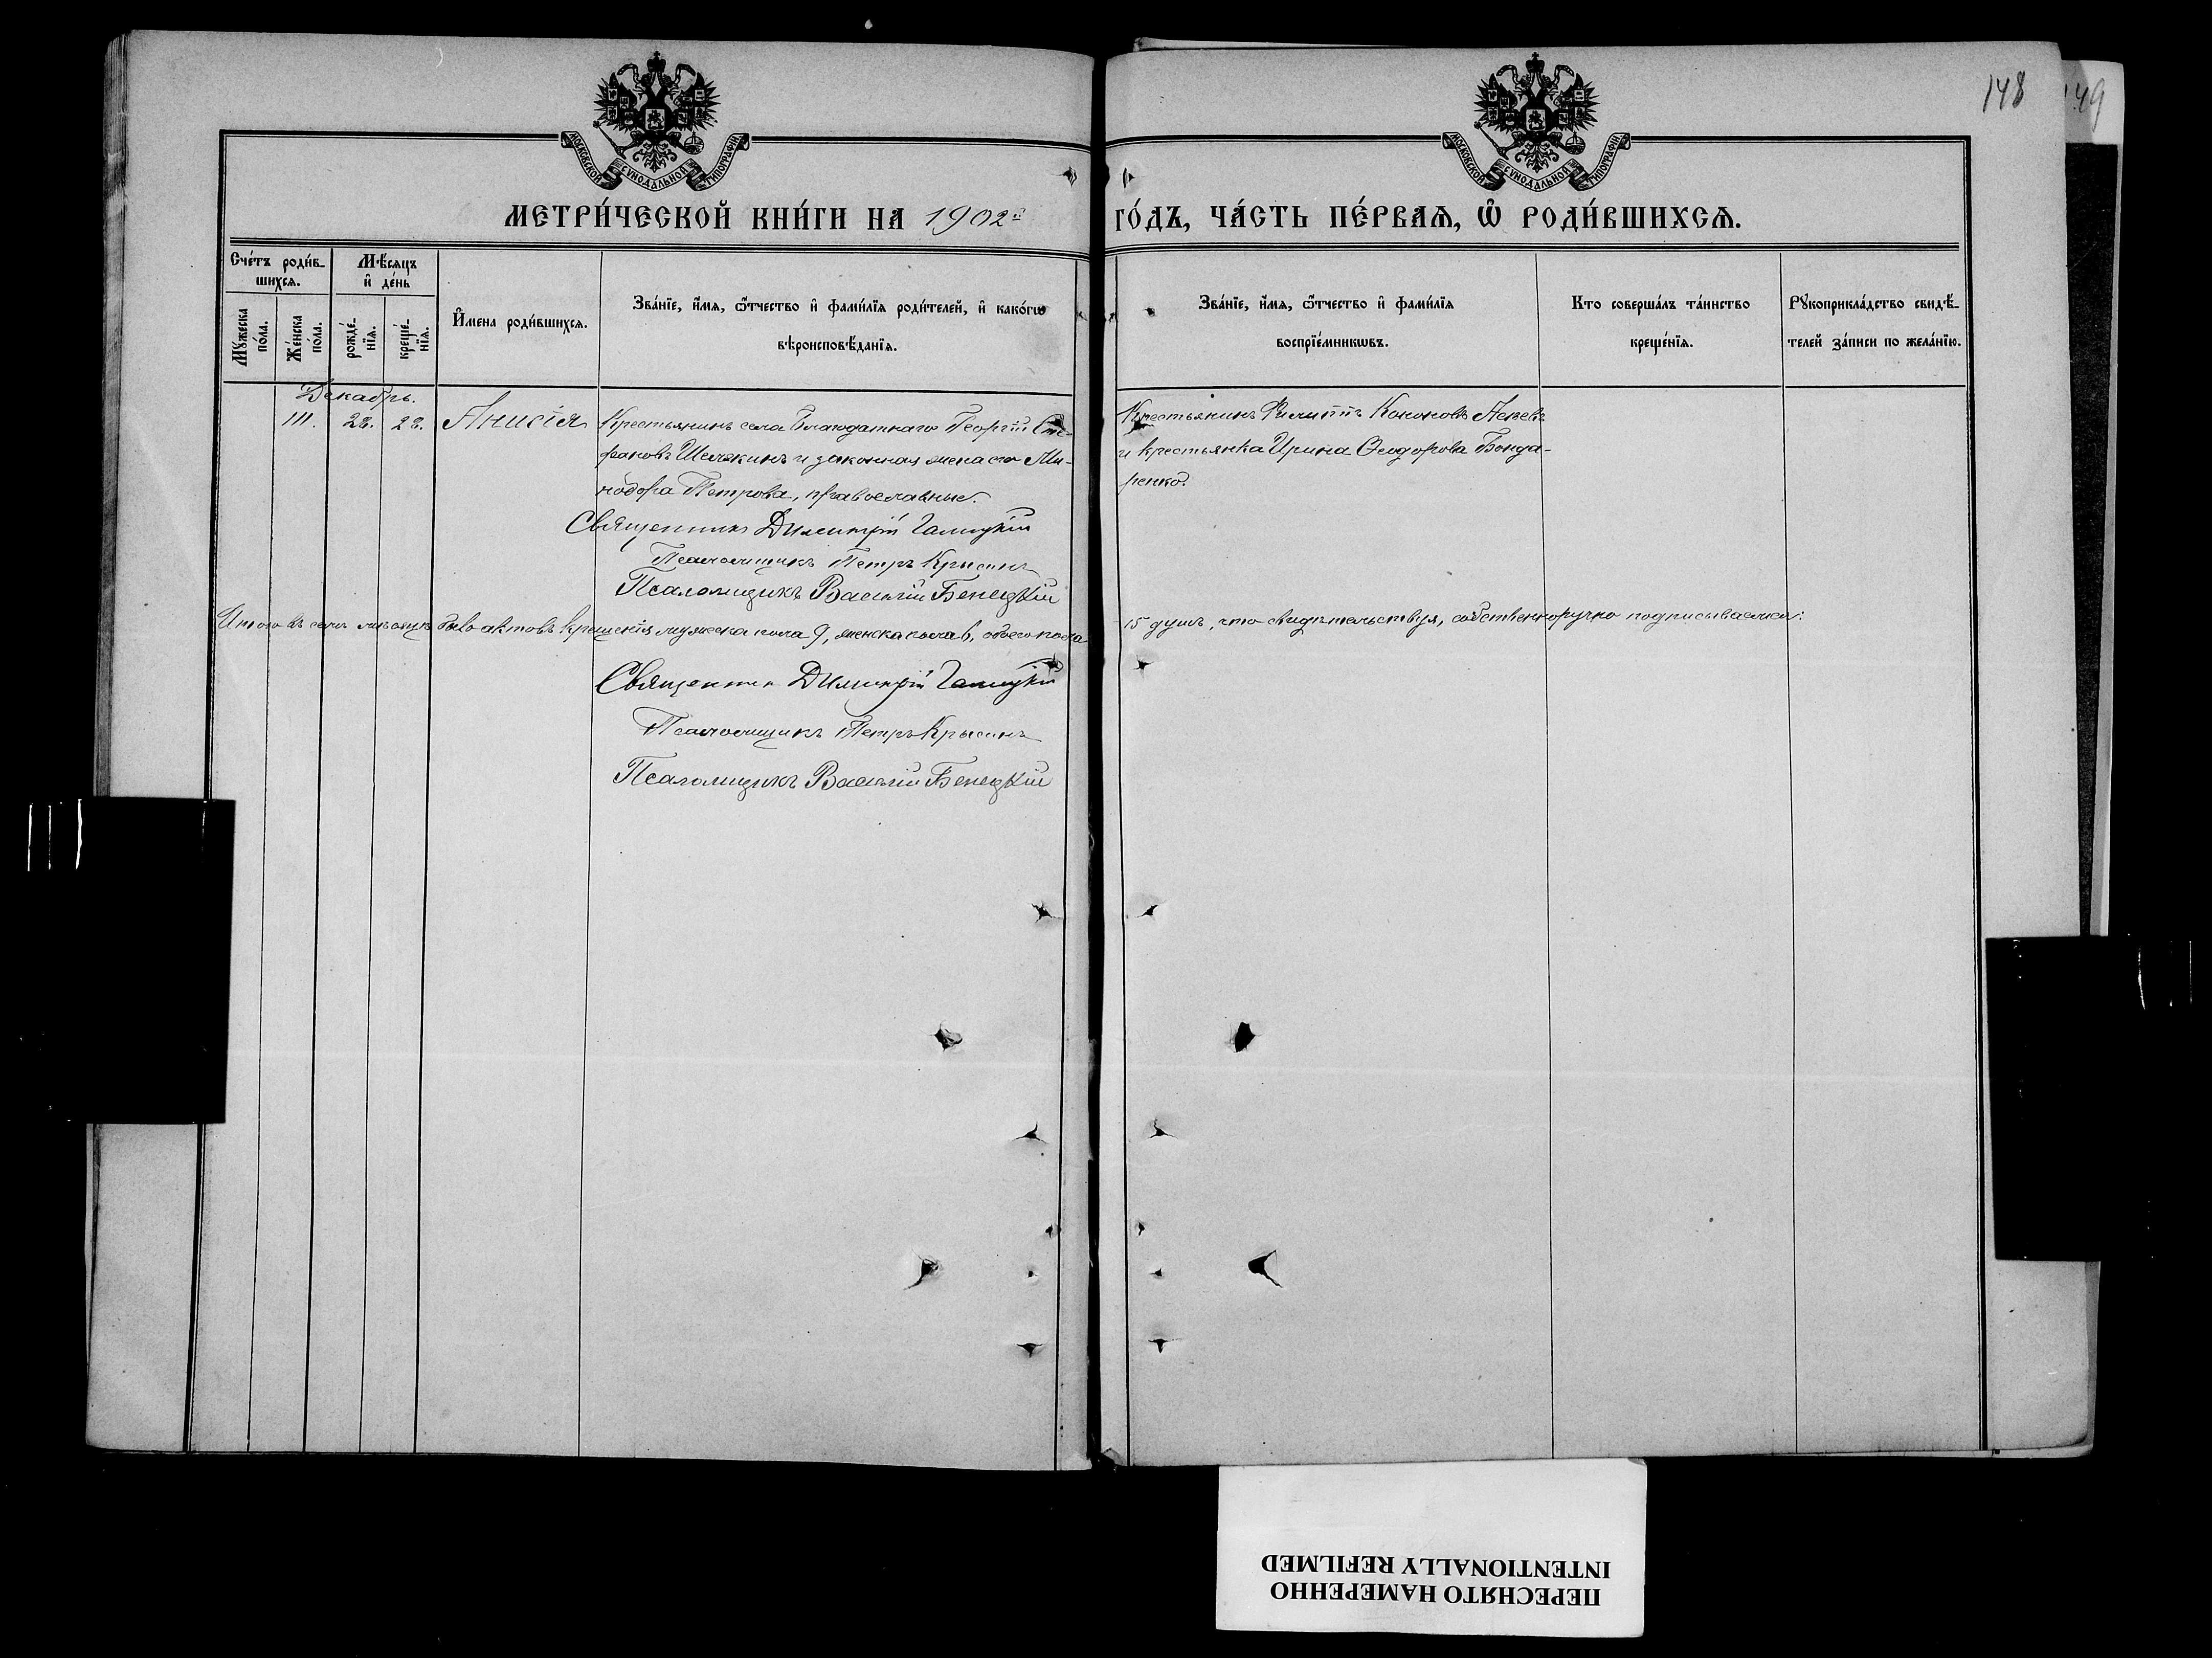 148
149
МОСКОВСКОЙ СУНОДАЛЬНОЙ ТИПОГРАФІИ
МОСКОВСКОЙ СУНОДАЛЬНОЙ ТИПОГРАФІИ
МЕТРИ́ЧЕСКОЙ КНИ́ГИ НА 1902й ГО́ДЪ, ЧА́СТЬ ПЕ́РВАѦ, Ѡ҆ РОДИ́ВШИХСѦ.
Сче́тъ роди́в-
шихсѧ.
Мꙋ́жеска
по́ла.
Же́нска
по́ла.
Мѣ́сѧцъ
и҆ де́нь
рожде́-
нїѧ.
креще́-
нїѧ.
И҆мена роди́вшихсѧ.
Зва́нїе, и҆́мѧ, ѻ҆́тчество и҆ фами́лїѧ роди́телей, и҆ како́гѡ
вѣроисповѣ́данїѧ.
Зва́нїе, и҆́мѧ, ѻ҆́тчество и҆ фами́лїѧ
воспрїе́мникѡвъ.
Кто соверша́лъ та́инство
креще́нїѧ.
Рꙋкоприкла́дство свидѣ́-
телей за́писи по жела́нїю.
Декабрь.
111. 28. 28. Анисія
Крестьянинъ села Благодатнаго Георгій Сте-
фановъ Шелякинъ и законная жена его Ми-
нодора Петрова, православные.
Крестьянинъ Филиппъ Кононовъ
и крестьянка Ирина Ѳеодорова Бонда-
ренко.
Священникъ Димитрій Галицкій
Псаломщикъ Петръ Крысинъ
Псаломщикъ Василій Бенецкій
Итого въ семъ мѣсяцѣ было актовъ крещенія мужеска пола 9, женска пола 6, обоего пола 15 душъ, что свидѣтельствуя, собственноручно подписываемся:
Священникъ Димитрій Галицкій
Псаломщикъ Петръ Крысинъ
Псаломщикъ Василій Бенецкій
ПЕРЕСНЯТО НАМЕРЕННО
INTENTIONALLY REFILMED